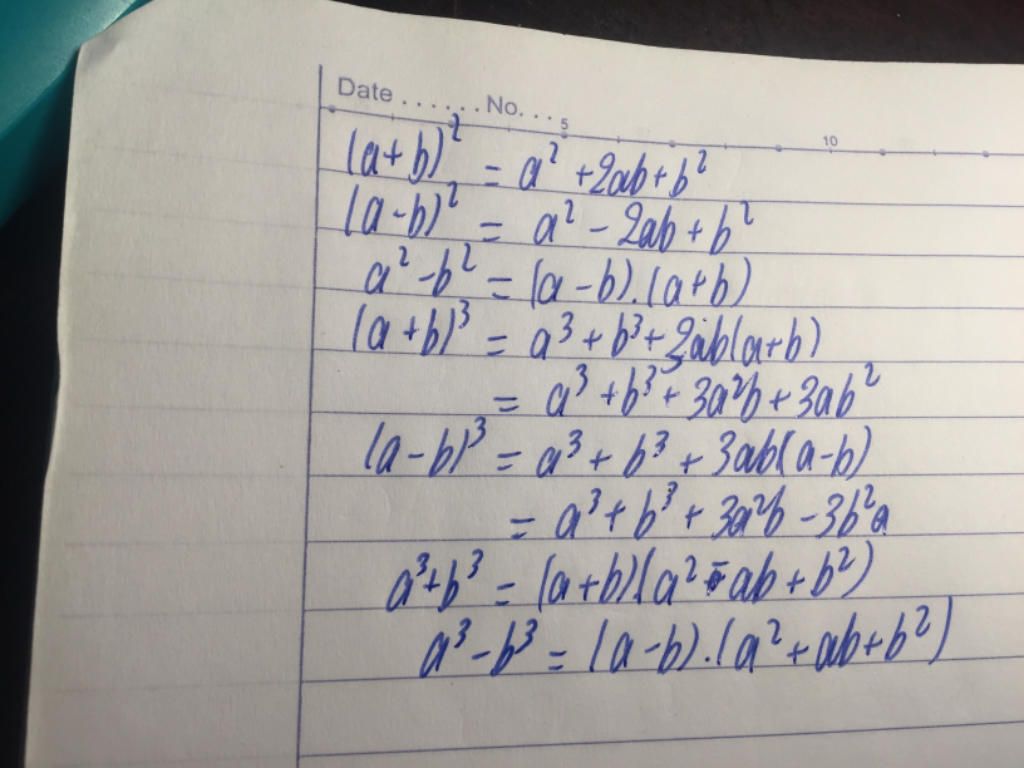 Date ...... No. ...
5 10
(a+b)² = a² +2ab+b²
(a-b)² = a² - 2ab + b²
a² -b² = (a-b).(a+b)
(a+b)³ = a³ + b³ + 3ab(a+b)
= a³ +b³ + 3a²b + 3ab²
(a-b)³ = a³ + b³ + 3ab(a-b)
= a³ + b³ + 3a²b - 3b²a
a³+b³ = (a+b)(a² - ab + b²)
a³ -b³ = (a-b).(a² + ab+b²)